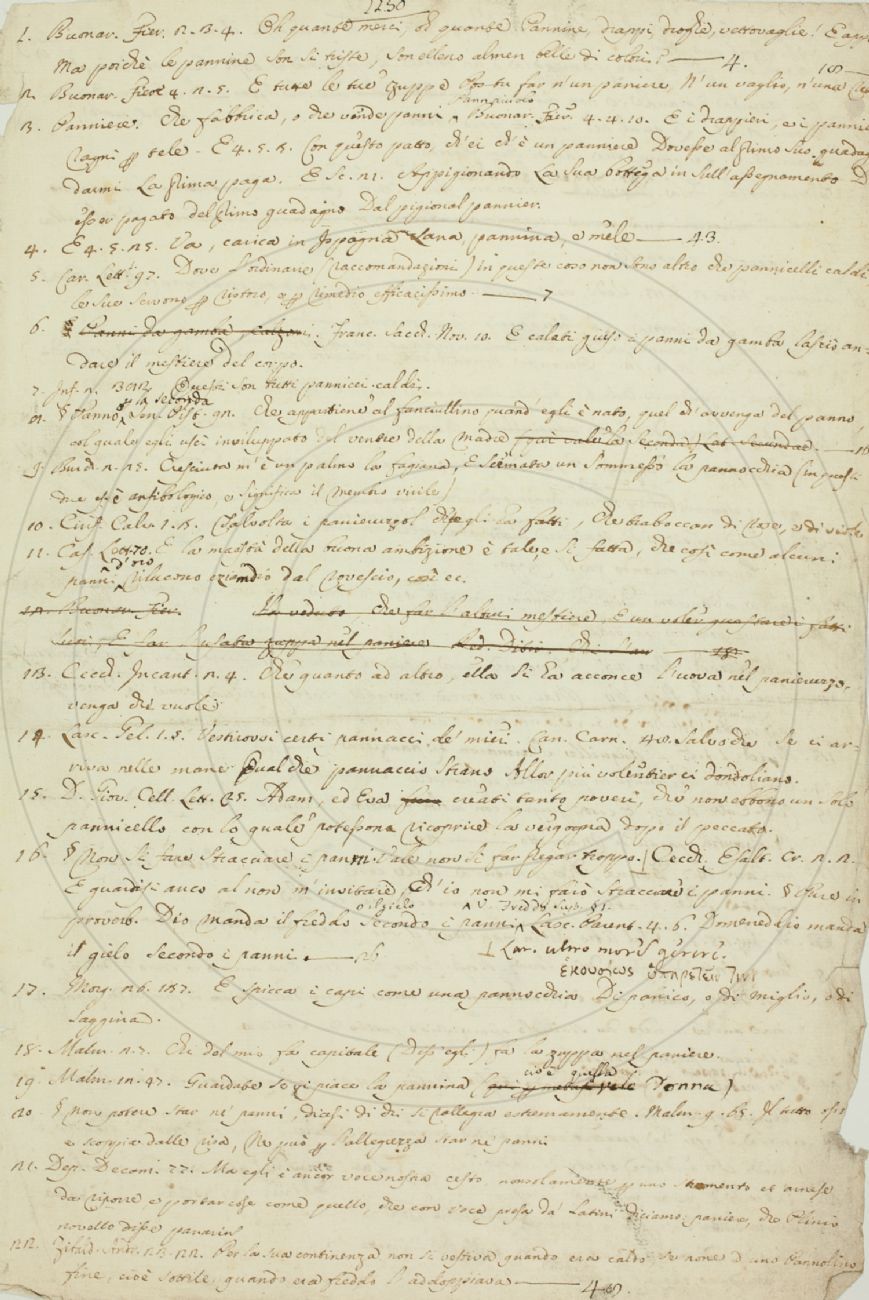 1230
1. Buonar. Fier. 2. 3. 4. Oh quante merci, oh quante Pannine, drappi, droghe, vettovaglie! E app
Ma poichè le pannine son sì triste, son elleno almen belle di colori? — 4.
2. Buonar. Fier. 4. 2. 5. E tutte le tue zuppe far n'un paniere, N'un vaglio, n'una
3. Panniere. Che fabbrica, o che vende panni Pannaiuolo Buonar. Fier. 4. 4. 10. E i drappieri, e i panni
Ragni tele. E 4. 5. Con questo patto, ch'ei ch'è un panniere Dovesse al primo suo guadag
darmi La prima paga. E Sc. 21. Appigionando La sua bottega in sull'assegnamento D
esser pagato del primo guadagno Dal pigional pannier.
4. E 4. 5. 25. Va, carica in Ispagna Lana, pannina, e mele — 43.
5. Car. Lett. 97. Dove l'ordinarie (raccomandazioni) in queste cose non sono altro che pannicelli caldi
le sue servono ristoro, e rimedio efficacissimo. — 7
6. Panni da gamba, calzoni. Franc. Sacch. Nov. 10. E calati giuso i panni da gamba lasciò an-
dare il mestiere del corpo.
7. Inf. n. Questi son tutti pannicei caldi.
§ Panno la seconda Che appartiene al fanciullino quand'egli è nato, quel ch'avvenga del panno
col quale egli uscì inviluppato del ventre della madre
9. Cresciuta m'è un palmo la fagiana, E scemata un sommesso la pannocchia (in
che è anfibologico, e significa il membro virile)
10. Ciriff. Calv. 1. Talvolta i panieruzzol ch'egli ha fatti, Che traboccan di rose, e di viole
11. Cas. Lett. 70. E la maestà della buona ambizione è tale, e sì fatta, che così come alcuni
panni d'oro rilucono eziandio dal rovescio, così ec.
12. Buonar. Fier. Ho veduto, che far l'altrui mestiere, È un voler guastare i fatti
suoi, E far l'usata zuppa nel paniere
13. Cecch. Incant. 2. 4. Che quanto ad altro, ella si ha acconce l'uova nel panieruzzo,
venga chi vuole.
14. Lasc. Gel. 1. 5. Vestirovvi certi pannacci de' miei. Can. Carn. Salvo che se ci ar-
riva nelle mane Qualche pannaccio strano Allor più volentier ci dondoliamo.
15. D. Giov. Cell. Lett. 25. Adam, ed Eva creati tanto poveri, che non ebbono un solo
pannicello con lo quale potessono ricoprire la vergogna dopo il peccato.
16. § Non si fare stracciare i panni vale non si far pregar troppo. Cecch. Esalt. Cr. 2. 2.
E guardisi anco al non m'invitare, Ch'io non mi farò stracciare i panni. § Pure in
proverb. Dio manda il freddo o il gielo secondo i panni V. Freddo Lasc. Parent. 4. 6. Domeneddio manda
il gielo secondo i panni. — 26
Lat. ultro morem gerere.
ἑκουσίως ὑπηρετεῖν τινι
17. Morg. 26. E spicca i capi come una pannocchia Di panico, o di miglio, o di
saggina.
18. Malm. 2. 7. Chi del mio fa capitale (diss'egli) fa la zuppa nel paniere.
19. Malm. 11. 47. Guardate se vi piace la pannina (cioè quella Donna)
20. § Non potere star ne' panni, dicesi di chi si rallegra estremamente. Malm. 9. 65. Il tutto
e scoppia dalle risa, Nè può l'allegrezza star ne' panni
21. Dep. Decam. 77. Ma egli è ancor voce nostra cesto, non solamente uno strumento et arnese
da riporre e portar cose come quello, che con voce presa da' Latini diciamo paniere, che Plinio
novello disse panarium
22. Per la sua continenza non si vestiva quando era caldo se none d'uno Pannolino
fine, cioè sottile, quando era freddo l'addoppiava —